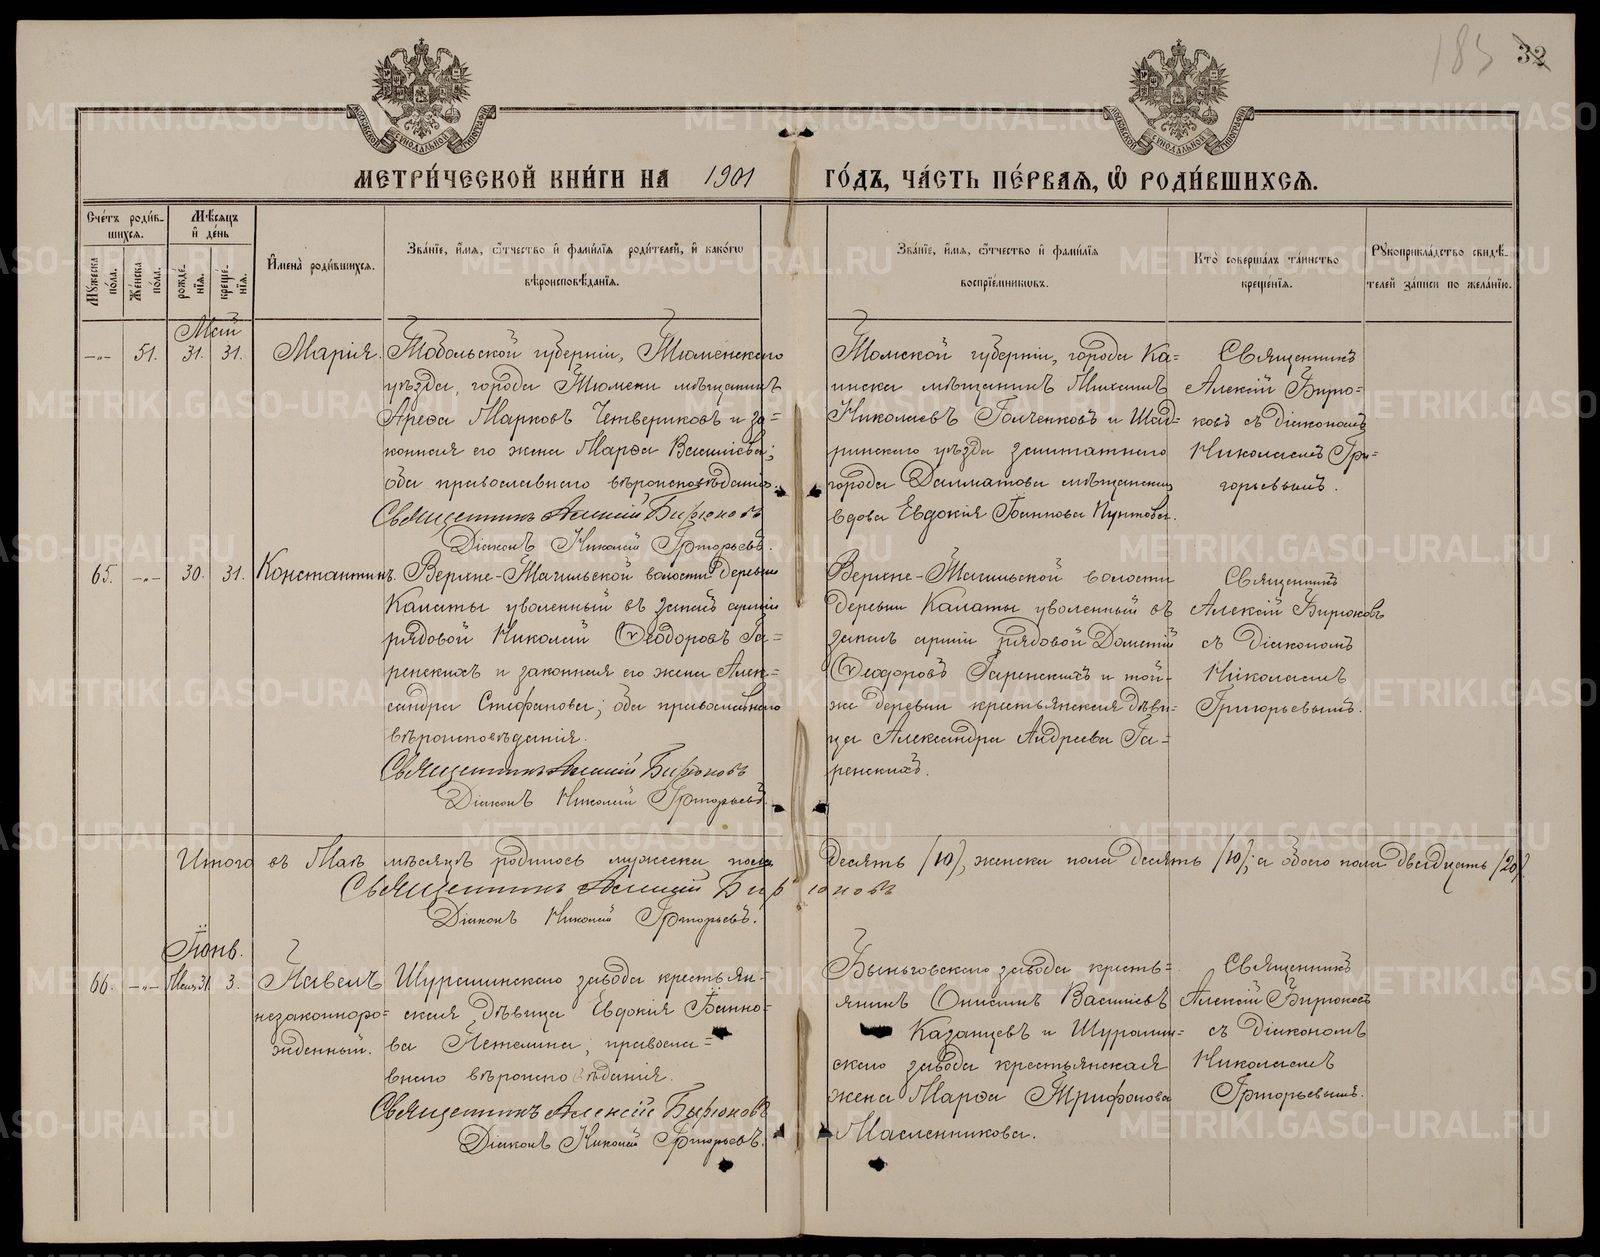 183 32
МЕТРИ́ЧЕСКОЙ КНИ́ГИ НА 1901 ГО́ДЪ, ЧА́СТЬ ПЕ́РВАЯ, Ѡ РОДИ́ВШИХСЯ.
МОСКОВСКОЙ СѴНОДАЛЬНОЙ ТИПОГРАФІИ
МОСКОВСКОЙ СѴНОДАЛЬНОЙ ТИПОГРАФІИ
Сче́тъ роди́вшихся.
Мѣ́сяцъ и́ де́нь
Му́жеска по́ла.
Же́нска по́ла.
рожде́нїя.
креще́нїя.
И́мена̀ роди́вшихся.
Зва́нїе, и́мя, ѻ́тчество и́ фами́лїя роди́телей, и́ како́гѡ вѣроисповѣ́данїя.
Зва́нїе, и́мя, ѻ́тчество и́ фами́лїя воспрїе́мникѡвъ.
Кто̀ соверша́лъ та́инство креще́нїя.
Рꙋкоприкла́дство свидѣ́телей за́писи по жела́нїю.
Май
-„- 51. 31. 31. Марія.
Тобольской губерніи, Тюменскаго
уѣзда, города Тюмени мѣщанинъ
Арефа Марковъ Четвериковъ и за=
конная его жена Марѳа Васильева;
оба православнаго вѣроисповѣданія.
Священникъ Алексій Бирюковъ
Діаконъ Николай Григорьевъ.
Томской губерніи, города Ка=
инска мѣщанинъ Михаилъ
Николаевъ Голченковъ и Шад=
ринскаго уѣзда заштатнаго
города Далматова мѣщанская
вдова Евдокія Іоаннова Пунтова.
Священникъ
Алексій Бирю=
ковъ съ діакономъ
Николаемъ Гри=
горьевымъ.
65. -„- 30. 31. Константинъ.
Верхне-Тагильской волости деревни
Калаты уволенный въ запасъ арміи
рядовой Николай Ѳеодоровъ Га=
ренскихъ и законная его жена Алек=
сандра Стефанова; оба православнаго
вѣроисповѣданія.
Священникъ Алексій Бирюковъ
Діаконъ Николай Григорьевъ.
Верхне-Тагильской волости
деревни Калаты уволенный въ
запасъ арміи рядовой Дометій
Ѳеодоровъ Гаренскихъ и той-
же деревни крестьянская дѣви=
ца Александра Андреева Га=
ренскихъ.
Священникъ
Алексій Бирюковъ
съ діакономъ
Николаемъ
Григорьевымъ.
Итого въ Маѣ мѣсяцѣ родилось мужеска пола десять /10/, женска пола десять /10/; а обоего пола двадцать /20/.
Священникъ Алексій Бирюковъ
Діаконъ Николай Григорьевъ.
Іюнь.
66. -„- Мая 31. 3. Павелъ
незаконноро=
жденный.
Шуралинскаго завода крестьян=
ская дѣвица Евдокія Іоанно=
ва Петелина; правосла=
внаго вѣроисповѣданія.
Священникъ Алексій Бирюковъ
Діаконъ Николай Григорьевъ.
Быньговскаго завода кресть=
янинъ Онисимъ Васильевъ
Казанцевъ и Шуралин=
скаго завода крестьянская
жена Марѳа Трифонова
Масленникова.
Священникъ
Алексій Бирюковъ
съ діакономъ
Николаемъ
Григорьевымъ.
METRIKI.GASO-URAL.RU